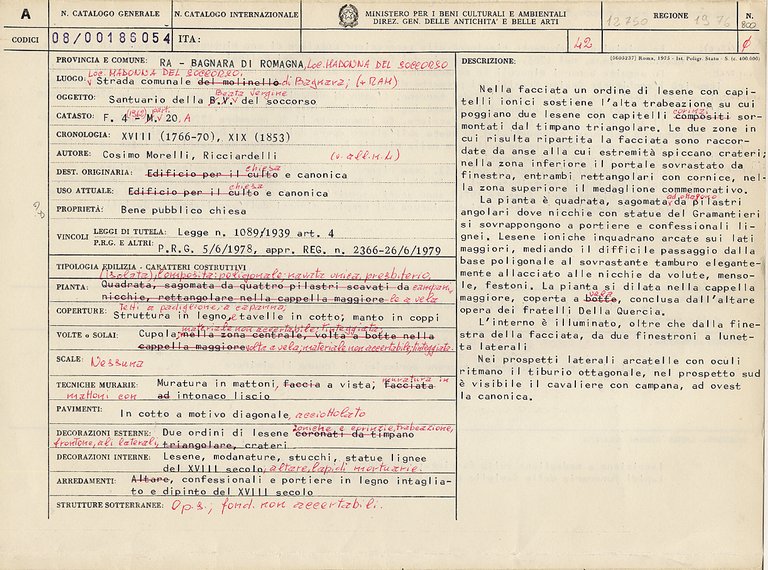 A
N. CATALOGO GENERALE
N. CATALOGO INTERNAZIONALE
MINISTERO PER I BENI CULTURALI E AMBIENTALI
DIREZ. GEN. DELLE ANTICHITA' E BELLE ARTI
REGIONE
N.
CODICI
08/00186054
ITA:
42
PROVINCIA E COMUNE: RA - BAGNARA DI ROMAGNA, Loc. MADONNA DEL SOCCORSO
Loc. MADONNA DEL SOCCORSO.
LUOGO: Strada comunale del molinello di Bagnara; (+RAM)
Beata Vergine
OGGETTO: Santuario della B.V. del soccorso
part.
CATASTO: F. 4 - M. 20 A
CRONOLOGIA: XVIII (1766-70), XIX (1853)
AUTORE: Cosimo Morelli, Ricciardelli (v. all. n. 4)
chiesa
DEST. ORIGINARIA: Edificio per il culto e canonica
chiesa
USO ATTUALE: Edificio per il culto e canonica
PROPRIETÀ: Bene pubblico chiesa
VINCOLI
LEGGI DI TUTELA: Legge n. 1089/1939 art. 4
P.R.G. E ALTRI: P.R.G. 5/6/1978, appr. REG. n. 2366-26/6/1979
TIPOLOGIA EDILIZIA - CARATTERI COSTRUTTIVI
(Isolata), composita: poligonale; navata unica, presbiterio,
PIANTA: Quadrata, sagomata da quattro pilastri scavati da campani,
nicchie, rettangolare nella cappella maggiore le a vela
Tetti a padiglione, a capanna;
COPERTURE: Struttura in legno, e tavelle in cotto; manto in coppi
materiale non accertabile; tinteggiata;
VOLTE o SOLAI: Cupola, nella zona centrale, volta a botte nella
cappella maggiore volta a vela; materiale non accertabile; tinteggiata.
SCALE: Nessuna
muratura in
TECNICHE MURARIE: Muratura in mattoni, faccia a vista; facciata
mattoni con ad intonaco liscio
PAVIMENTI: In cotto a motivo diagonale, acciottolato
ioniche e corinzie, trabeazione,
DECORAZIONI ESTERNE: Due ordini di lesene coronati da timpano
frontone, ali laterali, triangolare, crateri
DECORAZIONI INTERNE: Lesene, modanature, stucchi, statue lignee
del XVIII secolo, altare, lapidi mortuarie.
ARREDAMENTI: Altare, confessionali e portiere in legno intaglia-
to e dipinto del XVIII secolo
STRUTTURE SOTTERRANEE: Op. s.; fond. non accertabili.
(5605237) Roma, 1975 - Ist. Poligr. Stato - S. (c. 400.000)
DESCRIZIONE:
Nella facciata un ordine di lesene con capi-
telli ionici sostiene l'alta trabeazione su cui
corinzi
poggiano due lesene con capitelli compositi sor-
montati dal timpano triangolare. Le due zone in
cui risulta ripartita la facciata sono raccor-
date da anse alla cui estremità spiccano crateri;
nella zona inferiore il portale sovrastato da
finestra, entrambi rettangolari con cornice, nel-
la zona superiore il medaglione commemorativo.
ad ottagono
La pianta è quadrata, sagomata da pilastri
angolari dove nicchie con statue del Gramantieri
si sovrappongono a portiere e confessionali li-
gnei. Lesene ioniche inquadrano arcate sui lati
maggiori, mediando il difficile passaggio dalla
base poligonale al sovrastante tamburo elegante-
mente allacciato alle nicchie da volute, menso-
le, festoni. La pianta si dilata nella cappella
vela
maggiore, coperta a botte, conclusa dall'altare
opera dei fratelli Della Quercia.
L'interno è illuminato, oltre che dalla fine-
stra della facciata, da due finestroni a lunet-
ta laterali
Nei prospetti laterali arcatelle con oculi
ritmano il tiburio ottagonale, nel prospetto sud
è visibile il cavaliere con campana, ad ovest
la canonica.